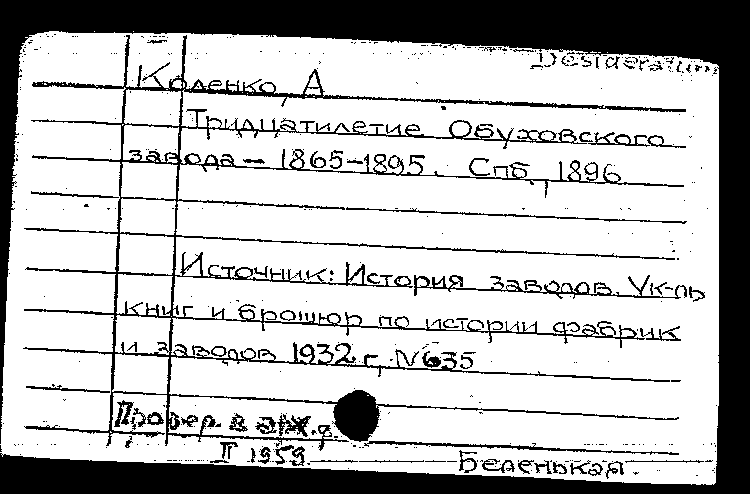 Desideratum
Коленко, А
Тридцатилетие Обуховского
завода – 1865–1895. Спб., 1896
Источник: История заводов. Ук-ль
книг и брошюр по истории фабрик
и заводов 1932 г, N635
Провер. в
II 1959
Беленькая.